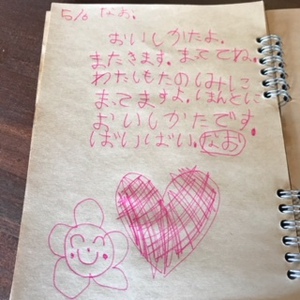 5/6 なお.
おいしかたよ.
またきます. まててね.
わたしもたのしみに
まてますよ. ほんとに
おいしかたです.
ばいばい. なお